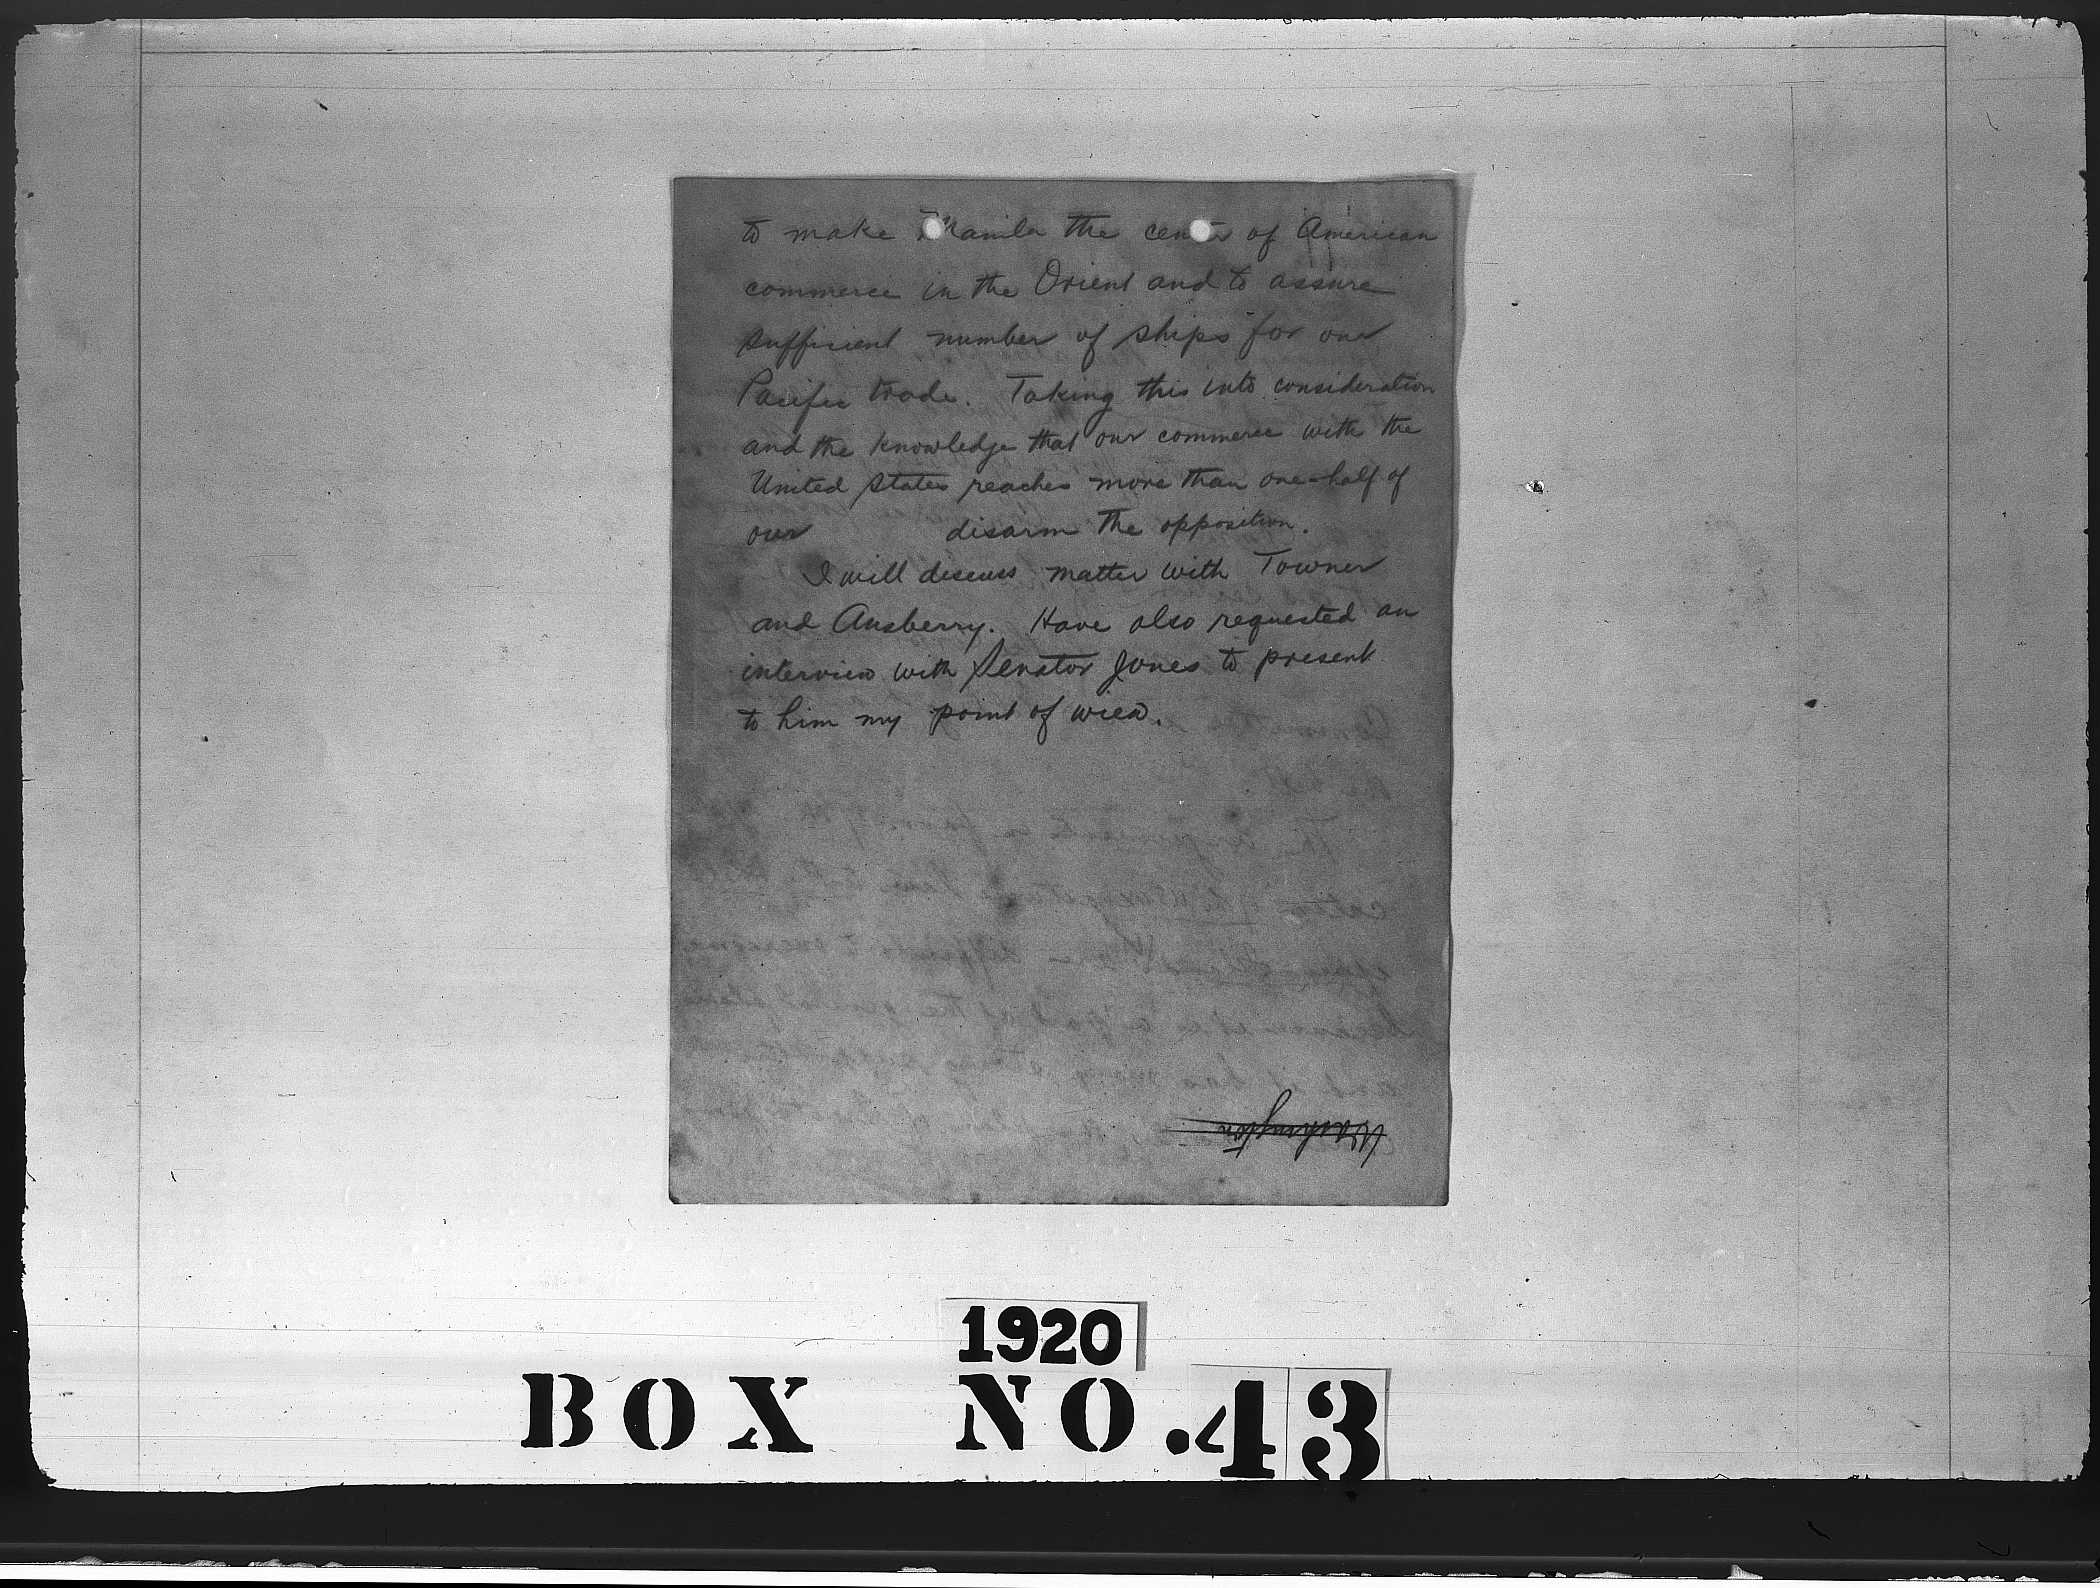 to make Manila the center of American
commerce in the Orient and to assure
sufficient number of ships for our
Pacific trade. Taking this into consideration
and the knowledge that our commerce with the
United States reaches more than one-half of
our disarm the opposition.
I will discuss matter with Towner
and Ansberry. Have also requested an
interview with Senator Jones to present
to him my point of wiew.
Washington
1920
BOX NO. 43